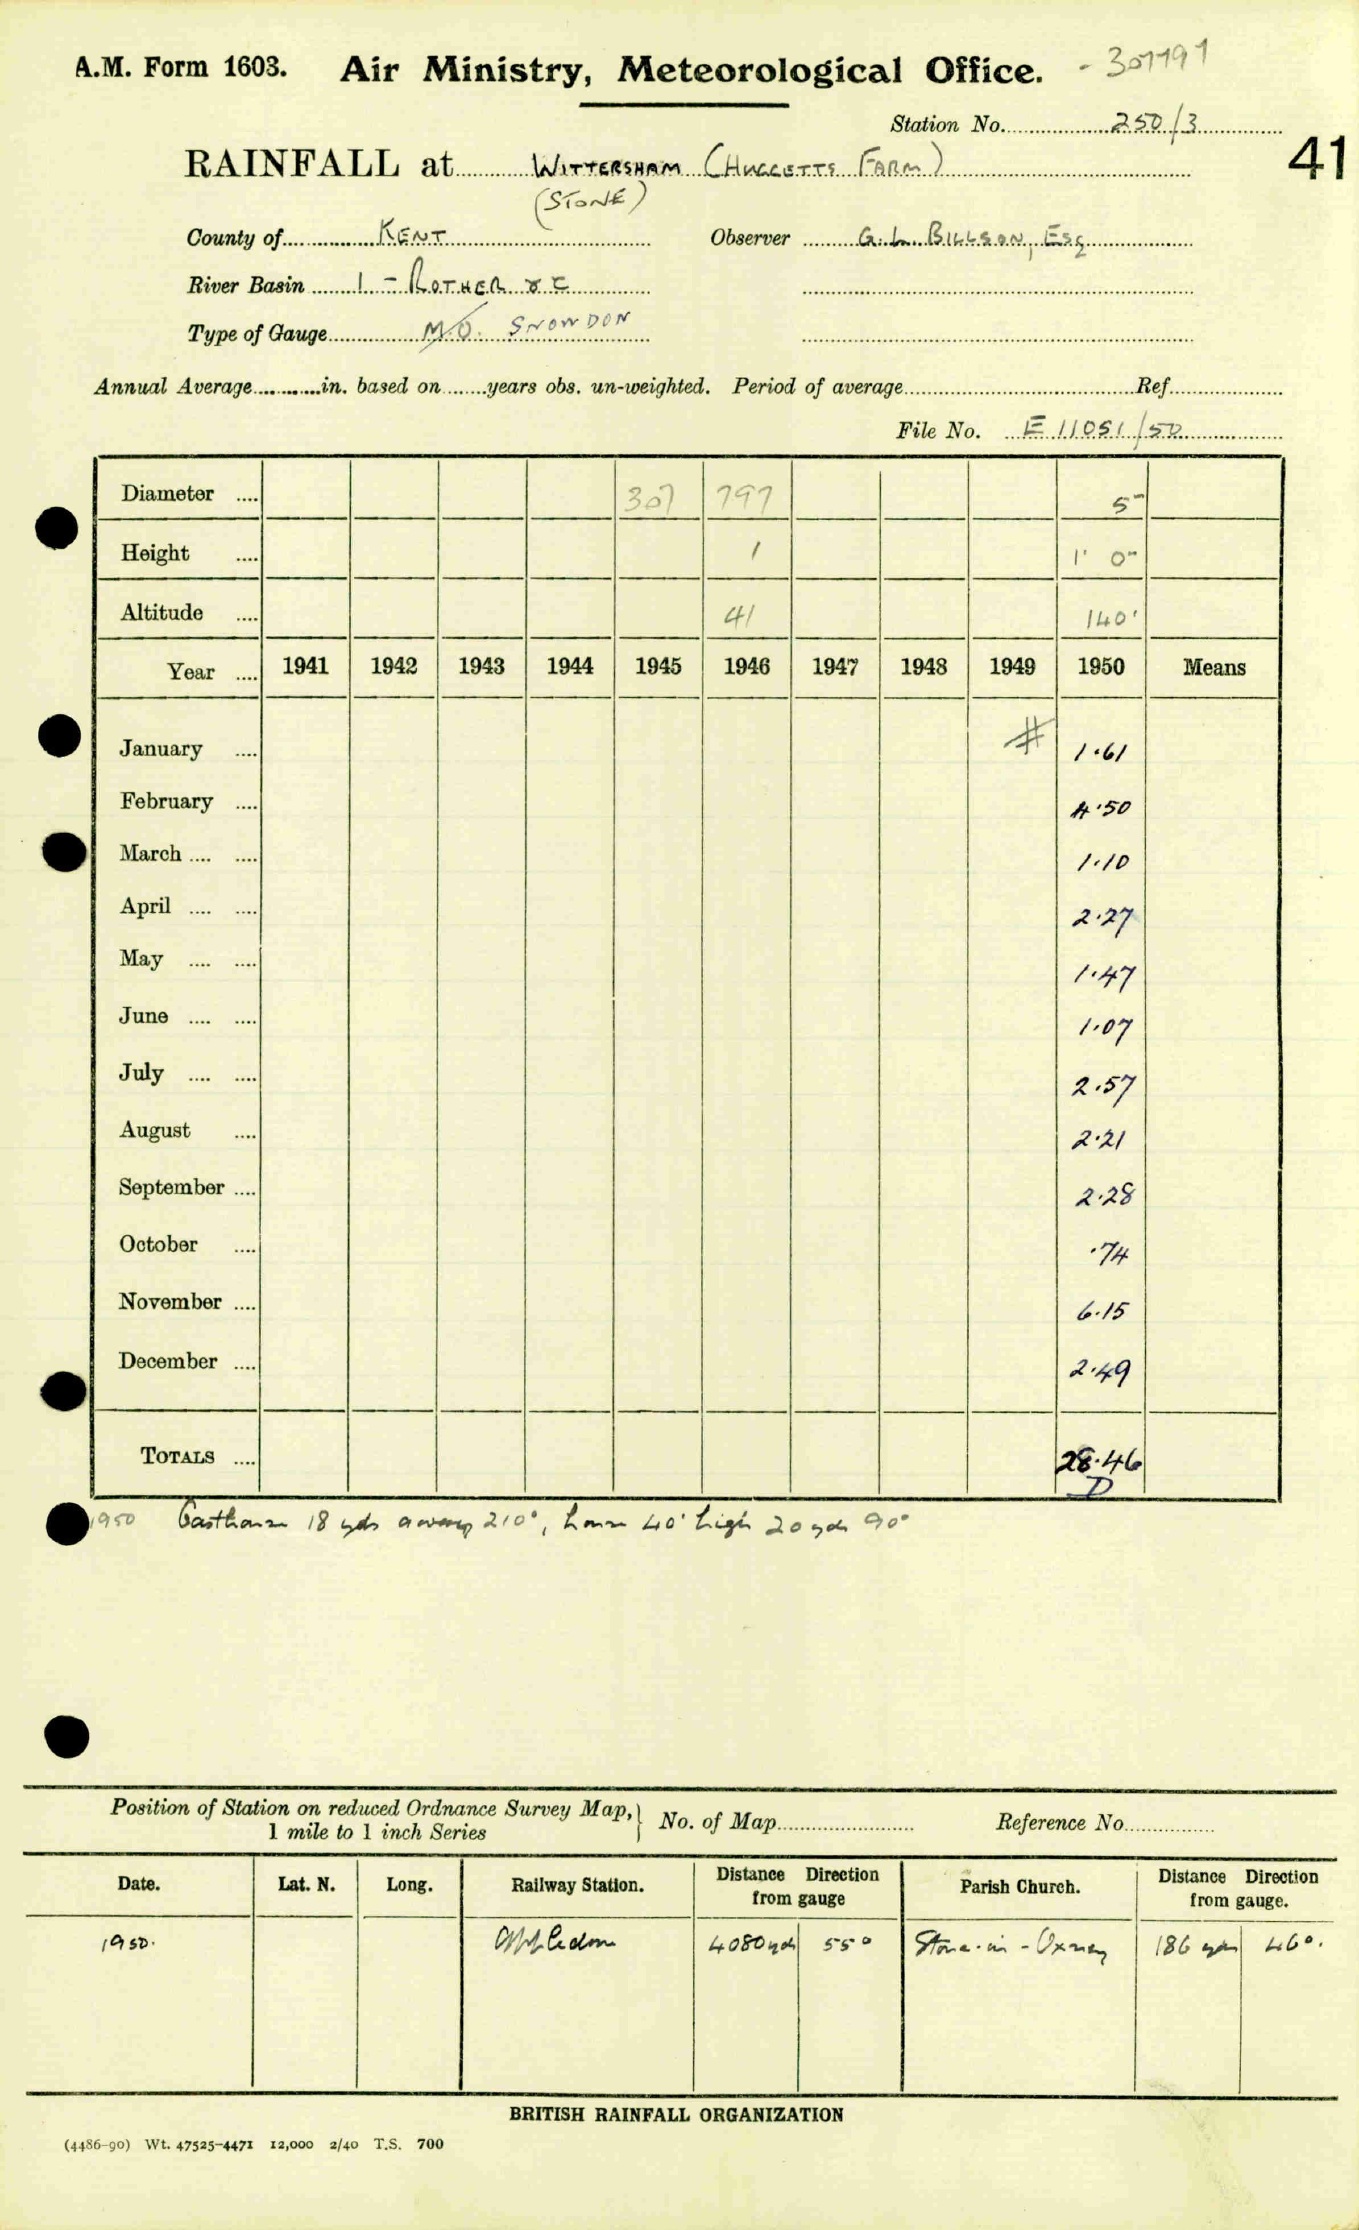 A.M. Form 1603. Air Ministry, Meteorological Office. - 307797
Station No. 250/3
41
RAINFALL at WITTERSHAM (HUGGETTS FARM)
(STONE)
County of KENT Observer G. L. BILLSON, Esq
River Basin 1 - ROTHER & C
Type of Gauge M.O. SNOWDON
Annual Average in. based on years obs. un-weighted. Period of average Ref
File No. E 11051/50
Diameter .... 307 797 5"
Height .... 1 1' 0"
Altitude .... 41 140'
Year .... 1941 1942 1943 1944 1945 1946 1947 1948 1949 1950 Means
January .... # 1.61
February .... 4.50
March .... .... 1.10
April .... .... 2.27
May .... .... 1.47
June .... .... 1.07
July .... .... 2.57
August .... 2.21
September .... 2.28
October .... .74
November .... 6.15
December .... 2.49
TOTALS .... 28.46
D
1950 Oasthouse 18 yds away 210°, house 40' high 20 yds 90°
Position of Station on reduced Ordnance Survey Map, } No. of Map Reference No.
1 mile to 1 inch Series
Date. Lat. N. Long. Railway Station. Distance Direction from gauge Parish Church. Distance Direction from gauge.
1950. Appledore 4080 yds 55° Stone-in-Oxney 186 yds 46°.
BRITISH RAINFALL ORGANIZATION
(4486-90) Wt. 47525-4471 12,000 2/40 T.S. 700